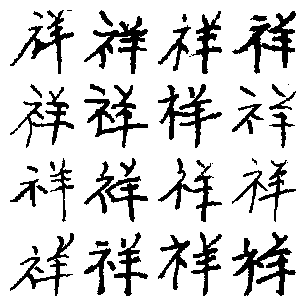 祥祥祥祥
祥祥祥祥
祥祥祥祥
祥祥祥祥